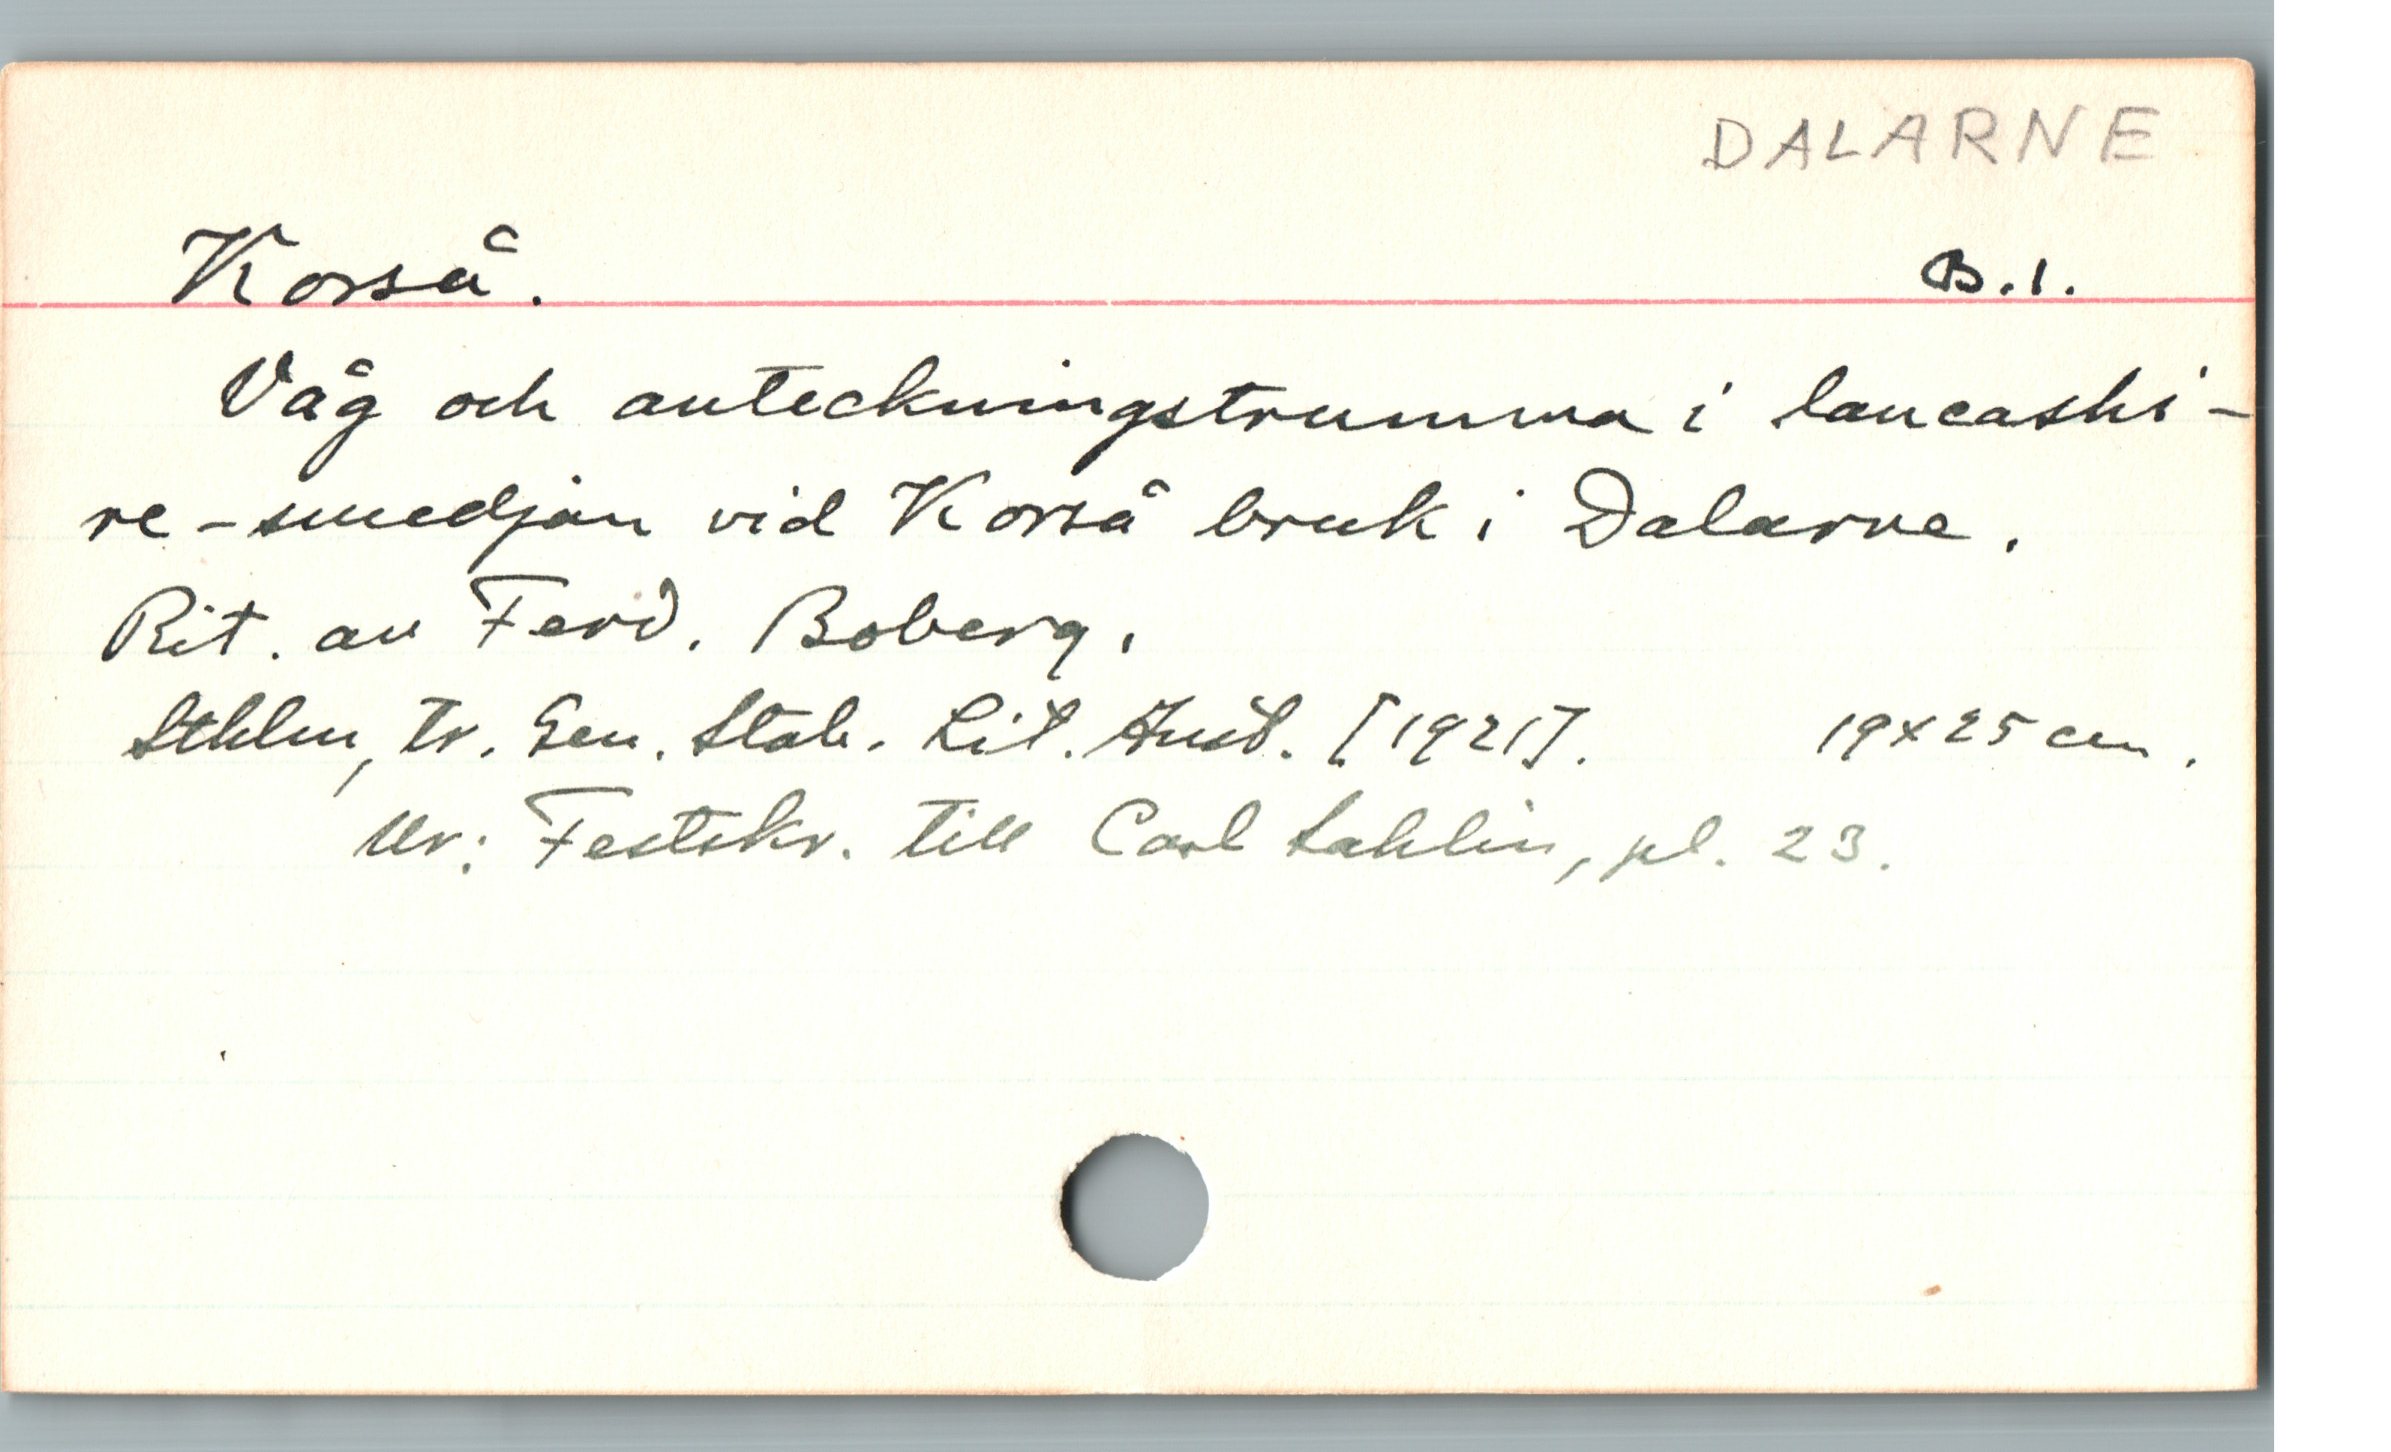 DALARNE
Korså. B.1.
Våg och anteckningstrumma i lancashi-
re-smedjan vid Korså bruk i Dalarne.
Rit. av Ferd. Boberg.
Sthlm, tr. Gen. Stab. Lit. Anst. [1921]. 19x25 cm.
Ur: Festskr. till Carl Sahlin, pl. 23.